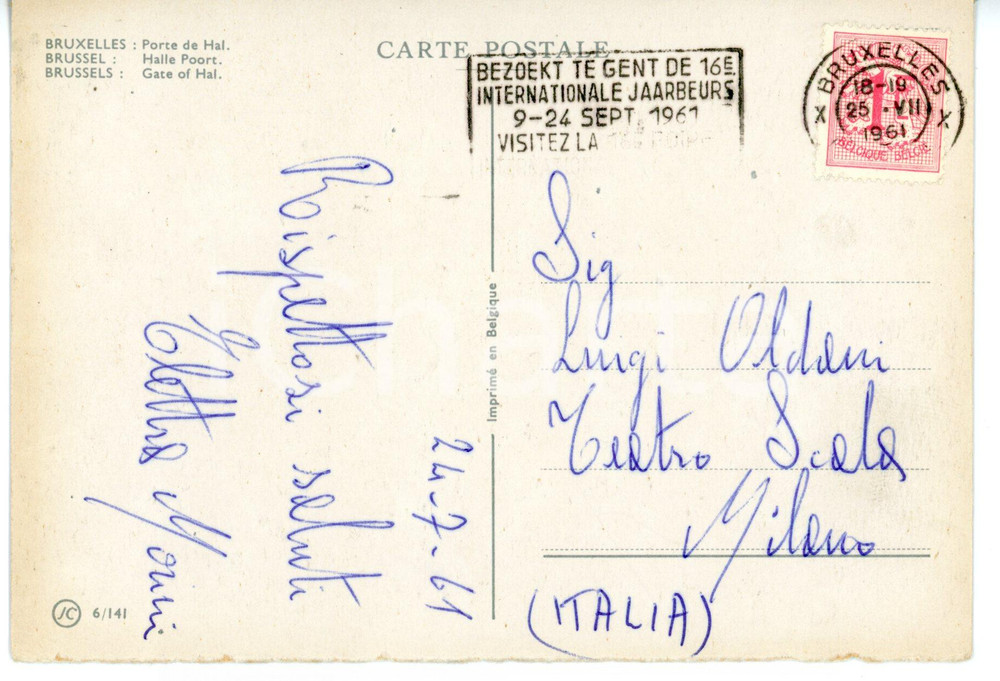 BRUXELLES : Porte de Hal.
BRUSSEL : Halle Poort.
BRUSSELS : Gate of Hal.
CARTE POSTALE
BEZOEKT TE GENT DE 16E
INTERNATIONALE JAARBEURS
9-24 SEPT. 1961
VISITEZ LA 16E FOIRE
INTERNATIONALE
X BRUXELLES X
18-19
25 • VII
1961
1F
BELGIQUE BELGIE
24-7-61
Rispettosi saluti
Elettra Morini
Imprimé en Belgique
Sig
Luigi Oldani
Teatro Scala
Milano
(ITALIA)
JC 6/141